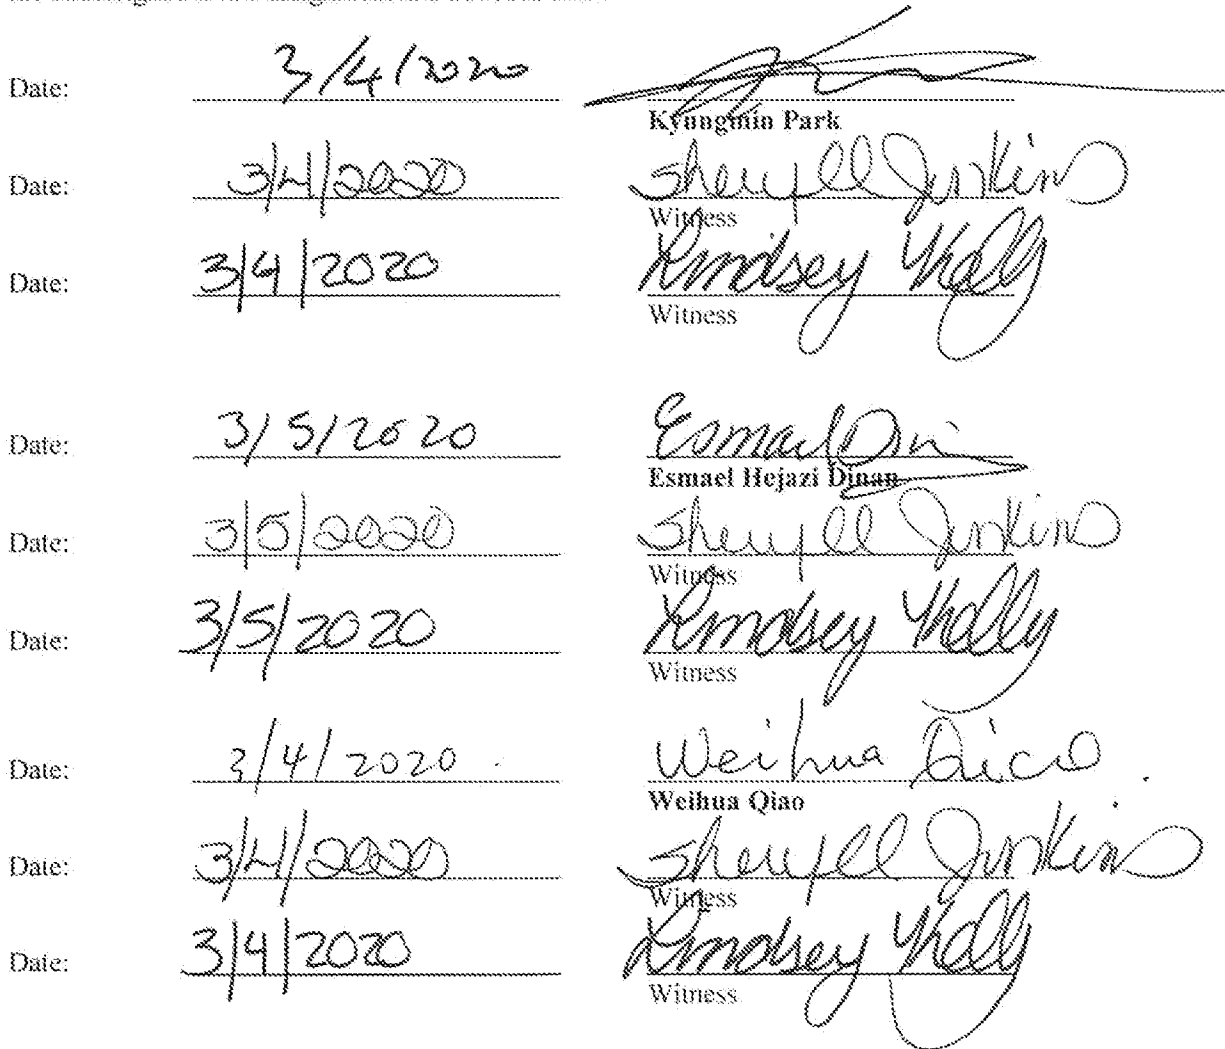 Date: 3/4/2020
Kyungmin Park
Date: 3/4/2020 Sheryll Jenkins
Witness
Date: 3/4/2020 Lindsey
Witness
Date: 3/5/2020 Esmael
Esmael Hejazi Dinan
Date: 3/5/2020 Sheryll Jenkins
Witness
Date: 3/5/2020 Lindsey
Witness
Date: 3/4/2020 Weihua Qiao
Weihua Qiao
Date: 3/4/2020 Sheryll Jenkins
Witness
Date: 3/4/2020 Lindsey
Witness